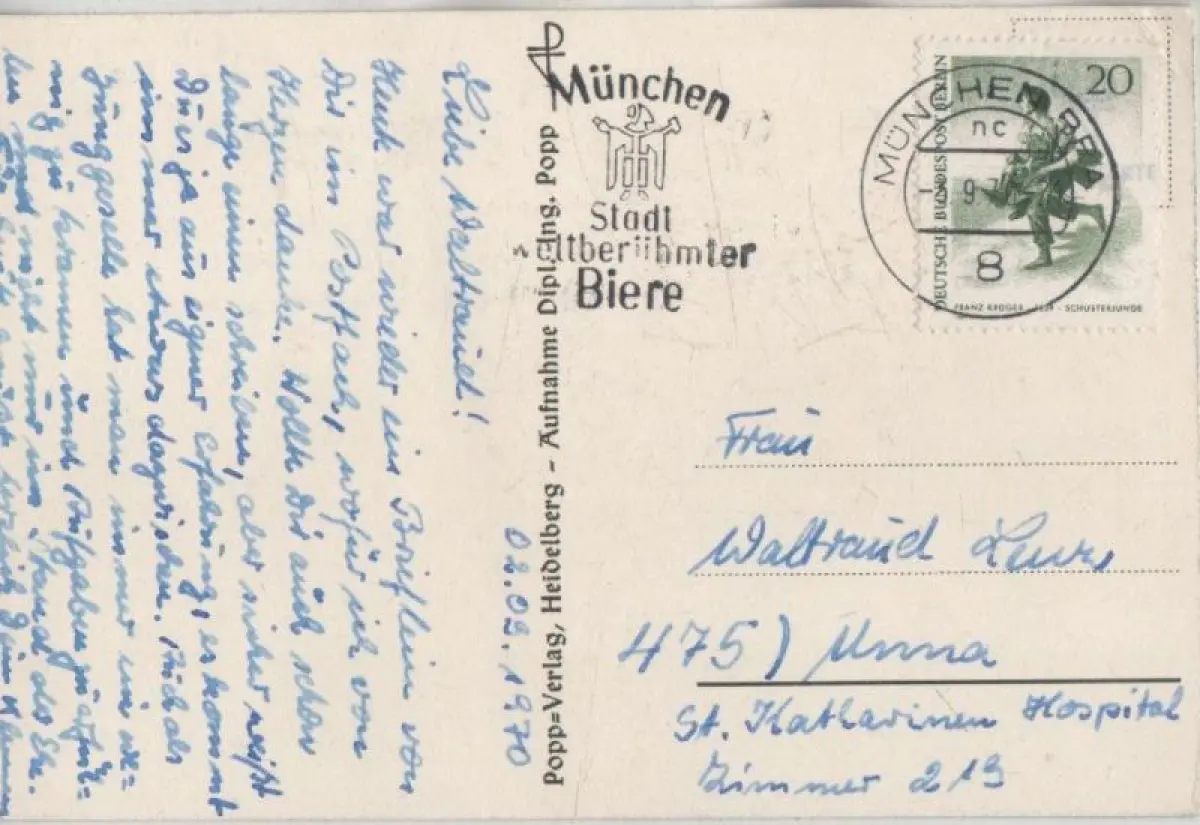 Liebe Waltraud!
02.09.1970
Heute war wieder ein Brieflein von
Dir im Postfach, wofür ich von
Herzen danke. Wollte Dir auch schon
lange einen schreiben, aber sicher weißt
Du's ja aus eigner Erfahrung, es kommt
immer etwas dazwischen. Auch als
Junggeselle hat man immer
zu kramen und Aufgaben zu erfül-
len
Popp=Verlag, Heidelberg - Aufnahme Dipl.=Ing. Popp
München
Stadt
weltberühmter
Biere
MÜNCHEN BP
nc
9.70
8
20
DEUTSCHE BUNDESPOST BERLIN
FRANZ KRÜGER · 1839 · SCHUSTERJUNGE
Frau
Waltraud
475) Unna
St. Katharinen Hospital
Zimmer 219